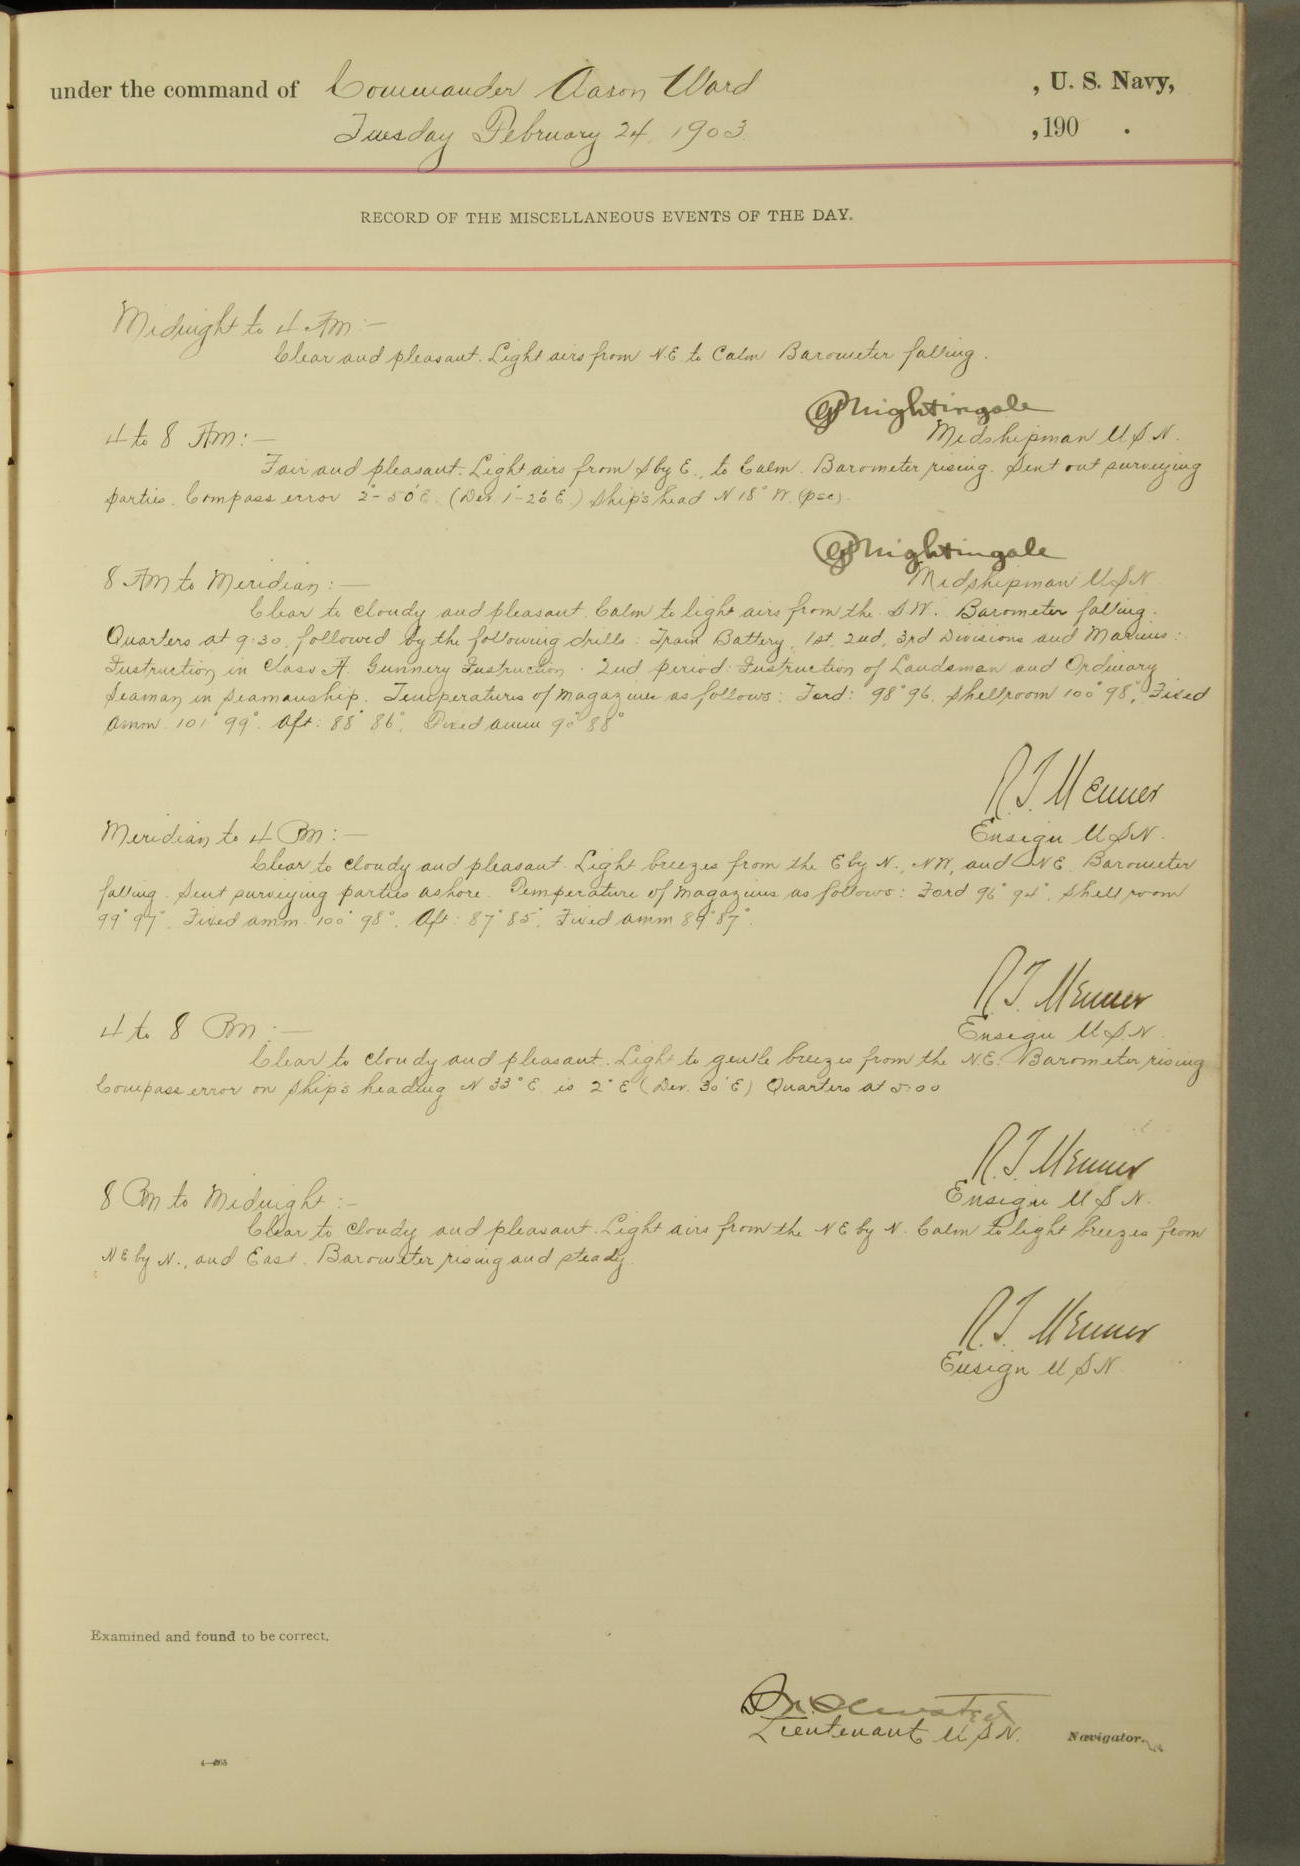 under the command of Commander Aaron Ward , U. S. Navy,
Tuesday February 24, 1903 , 190 .
RECORD OF THE MISCELLANEOUS EVENTS OF THE DAY.
Midnight to 4 AM:—
Clear and pleasant. Light airs from NE to Calm Barometer falling.
Nightingale
Midshipman U.S.N.
4 to 8 AM:—
Fair and pleasant. Light airs from S by E., to Calm. Barometer rising. Sent out surveying
parties. Compass error 2°-50'E. (Dev. 1°-20'E.) Ship's head N 18° W. (psc).
Nightingale
Midshipman U.S.N.
8 AM to Meridian:—
Clear to cloudy and pleasant. Calm to light airs from the S.W. Barometer falling.
Quarters at 9.30, followed by the following drills: Train Battery, 1st, 2nd, 3rd Divisions and Marines:
Instruction in Class A. Gunnery Instruction. 2nd period: Instruction of Landsman and Ordinary
Seaman in Seamanship. Temperatures of magazines as follows: Ford: 98° 96, Shellroom 100° 98°, Fixed
amm. 101° 99°. Aft: 88° 86°, Fixed amm 90° 88°
R. T. Menner
Ensign U.S.N.
Meridian to 4 PM:—
Clear to cloudy and pleasant. Light breezes from the E by N., NW, and NE. Barometer
falling. Sent surveying parties ashore. Temperature of magazines as follows: Ford 96° 94°. Shell room
99° 97°. Fixed amm. 100° 98°. Aft: 87° 85°. Fixed amm 89° 87°.
R. T. Menner
Ensign U.S.N.
4 to 8 PM:—
Clear to cloudy and pleasant. Light to gentle breezes from the NE. Barometer rising
Compass error on Ship's heading N 33° E. is 2° E (Dev. 30' E) Quarters at 5:00
R. T. Menner
Ensign U.S.N.
8 PM to Midnight:—
Clear to cloudy and pleasant. Light airs from the NE by N. Calm to light breezes from
NE by N., and East. Barometer rising and steady.
R. T. Menner
Ensign U.S.N.
Examined and found to be correct,
Lieutenant U.S.N. Navigator.